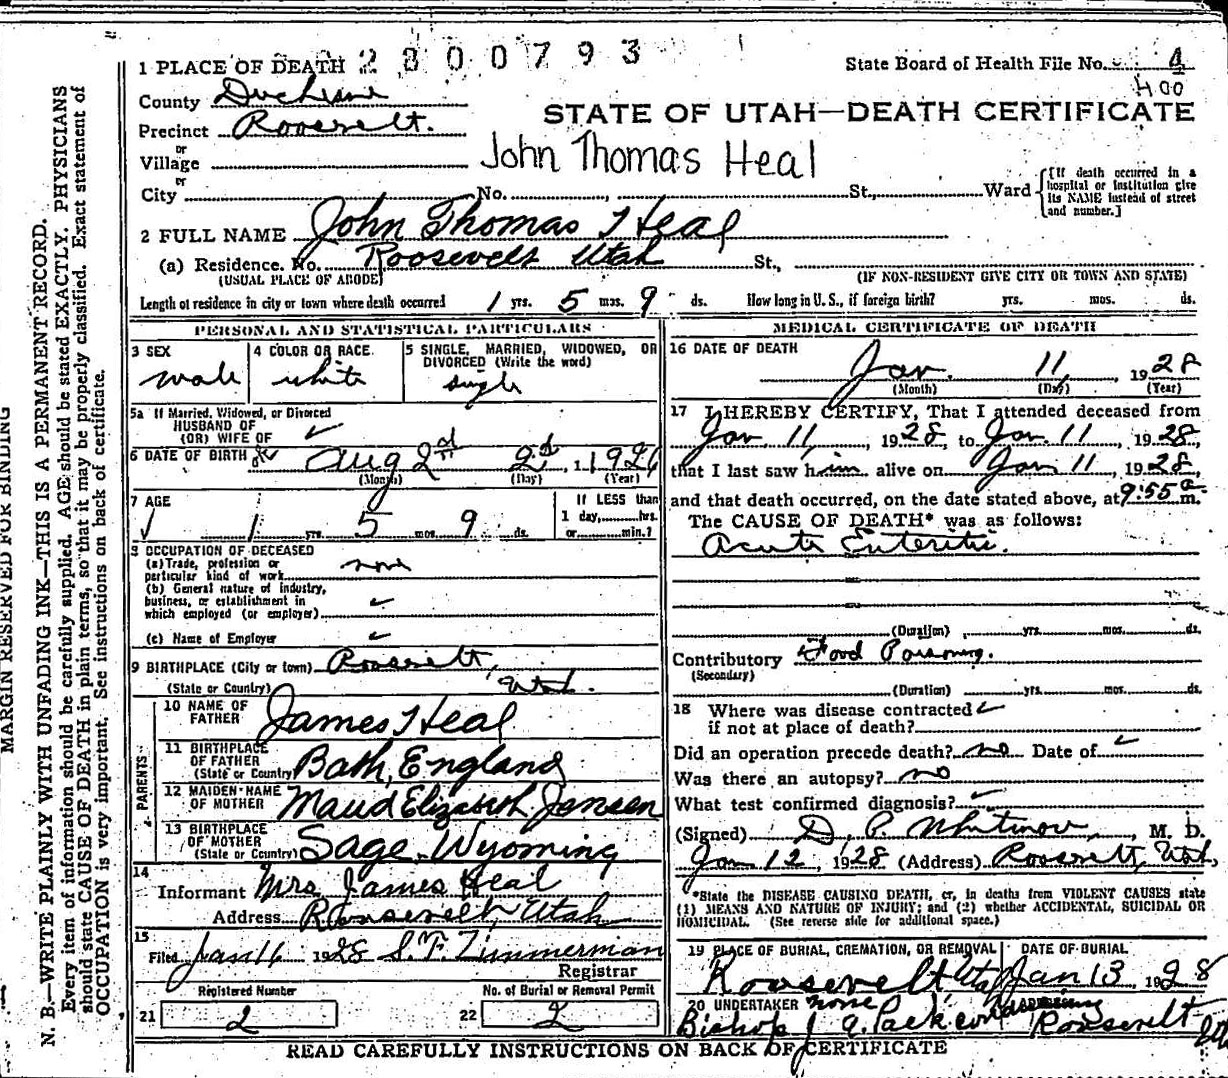 1 PLACE OF DEATH 2300793
State Board of Health File No. 4
400
County Duchesne
STATE OF UTAH—DEATH CERTIFICATE
Precinct Roosevelt.
or
Village
John Thomas Heal
or
City No. St., Ward
[If death occurred in a hospital or institution give its NAME instead of street and number.]
2 FULL NAME John Thomas Heal
(a) Residence. No. Roosevelt Utah St.,
(USUAL PLACE OF ABODE) (IF NON-RESIDENT GIVE CITY OR TOWN AND STATE)
Length of residence in city or town where death occurred 1 yrs. 5 mos. 9 ds. How long in U. S., if foreign birth? yrs. mos. ds.
PERSONAL AND STATISTICAL PARTICULARS
3 SEX male
4 COLOR OR RACE white
5 SINGLE, MARRIED, WIDOWED, OR DIVORCED (Write the word) single
5a If Married, Widowed, or Divorced
HUSBAND OF
(OR) WIFE OF
6 DATE OF BIRTH Aug 2nd 2d, 1926
(Month) (Day) (Year)
7 AGE 1 yrs. 5 mos. 9 ds.
If LESS than
1 day, hrs.
or min.?
8 OCCUPATION OF DECEASED
(a) Trade, profession or
particular kind of work none
(b) General nature of industry,
business, or establishment in
which employed (or employer)
(c) Name of Employer
9 BIRTHPLACE (City or town) Roosevelt,
(State or Country) Utah.
PARENTS
10 NAME OF FATHER James Heal
11 BIRTHPLACE OF FATHER (State or Country) Bath, England
12 MAIDEN NAME OF MOTHER Maud Elizabeth Jensen
13 BIRTHPLACE OF MOTHER (State or Country) Sage, Wyoming
14
Informant Mrs James Heal
Address Roosevelt, Utah
15
Filed Jan 16 1928 S. F. Zimmerman
Registrar
Registered Number
21 2
No. of Burial or Removal Permit
22 2
MEDICAL CERTIFICATE OF DEATH
16 DATE OF DEATH
Jan. 11, 1928
(Month) (Day) (Year)
17 I HEREBY CERTIFY, That I attended deceased from
Jan 11, 1928, to Jan. 11, 1928,
that I last saw him alive on Jan 11, 1928,
and that death occurred, on the date stated above, at 9:55 a m.
The CAUSE OF DEATH* was as follows:
Acute Enteritis.
(Duration) yrs. mos. ds.
Contributory Food Poisoning.
(Secondary)
(Duration) yrs. mos. ds.
18 Where was disease contracted
if not at place of death?
Did an operation precede death? no Date of
Was there an autopsy? no
What test confirmed diagnosis?
(Signed) D. P. Whitmore, M. D.
Jan 12, 1928 (Address) Roosevelt, Utah,
*State the DISEASE CAUSING DEATH, or, in deaths from VIOLENT CAUSES state
(1) MEANS AND NATURE OF INJURY; and (2) whether ACCIDENTAL, SUICIDAL OR
HOMICIDAL. (See reverse side for additional space.)
19 PLACE OF BURIAL, CREMATION, OR REMOVAL DATE OF BURIAL
Roosevelt Utah Jan 13 1928
20 UNDERTAKER none
Bishop J. A. Pack Roosevelt
READ CAREFULLY INSTRUCTIONS ON BACK OF CERTIFICATE
MARGIN RESERVED FOR BINDING
N. B.—WRITE PLAINLY WITH UNFADING INK—THIS IS A PERMANENT RECORD.
Every item of information should be carefully supplied. AGE should be stated EXACTLY. PHYSICIANS
should state CAUSE OF DEATH in plain terms, so that it may be properly classified. Exact statement of
OCCUPATION is very important. See instructions on back of certificate.